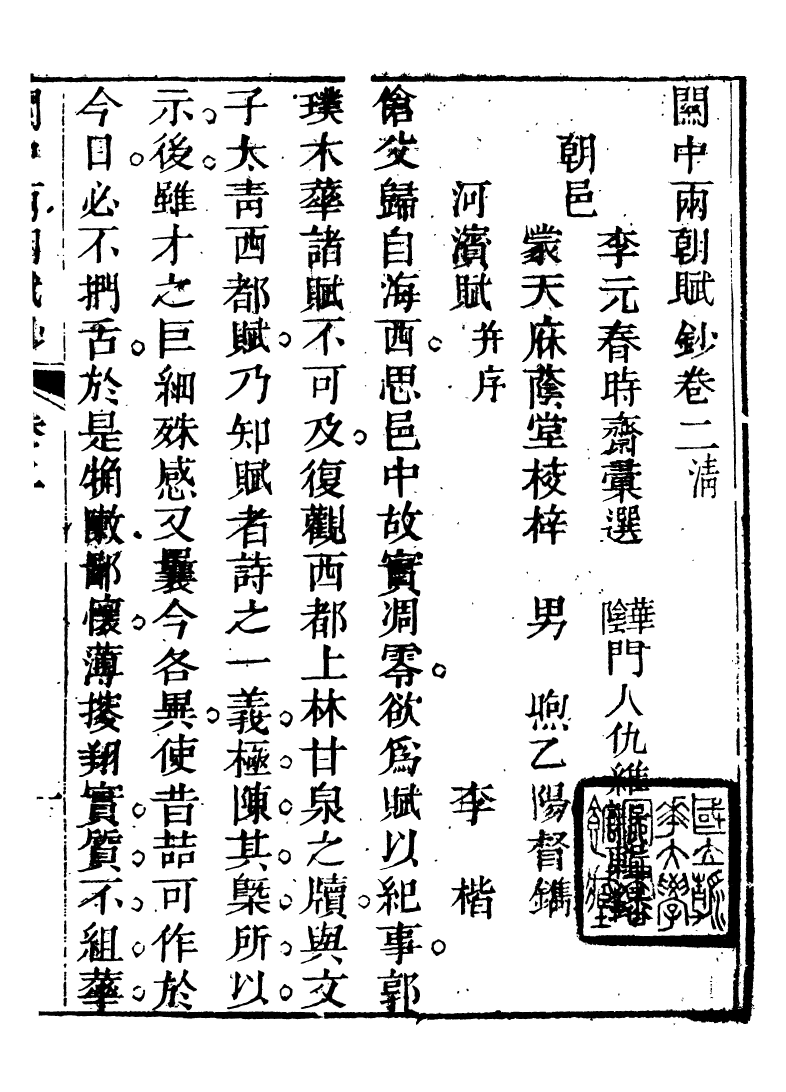 關中兩朝賦鈔卷二清
朝邑
李元春時齋彙選 華陰門人仇維
蒙天庥蔭堂校梓 男 煦乙陽督鐫
河濱賦 并序 李楷
傖父歸自海西思邑中故實凋零欲爲賦以紀事郭
璞木華諸賦不可及復觀西都上林甘泉之牘與文
子太青西都賦乃知賦者詩之一義極陳其槩所以
示後雖才之巨細殊感又曩今各異使昔喆可作於
今日必不捫舌於是觕敶鄙懷薄掞翔實質不組華
關中兩朝賦鈔 卷二 一